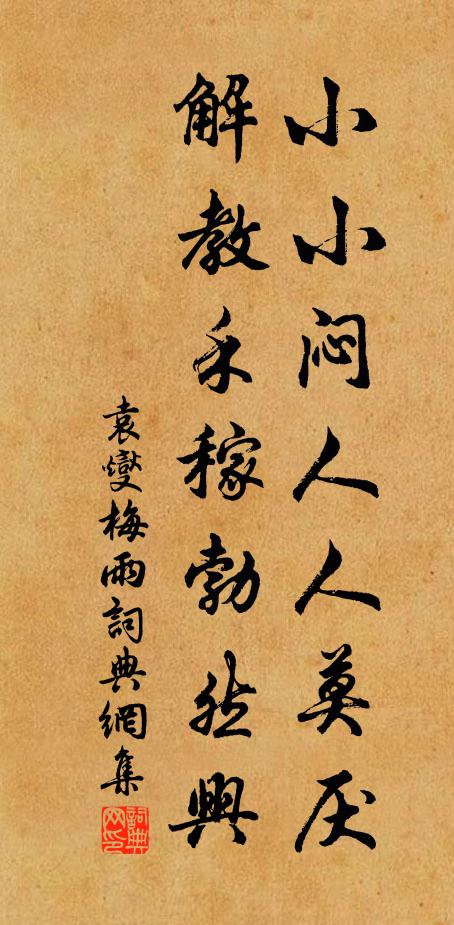 小小闷人人莫厌
解教禾稼勃然興
袁燮梅雨詞典網集
詞典网印